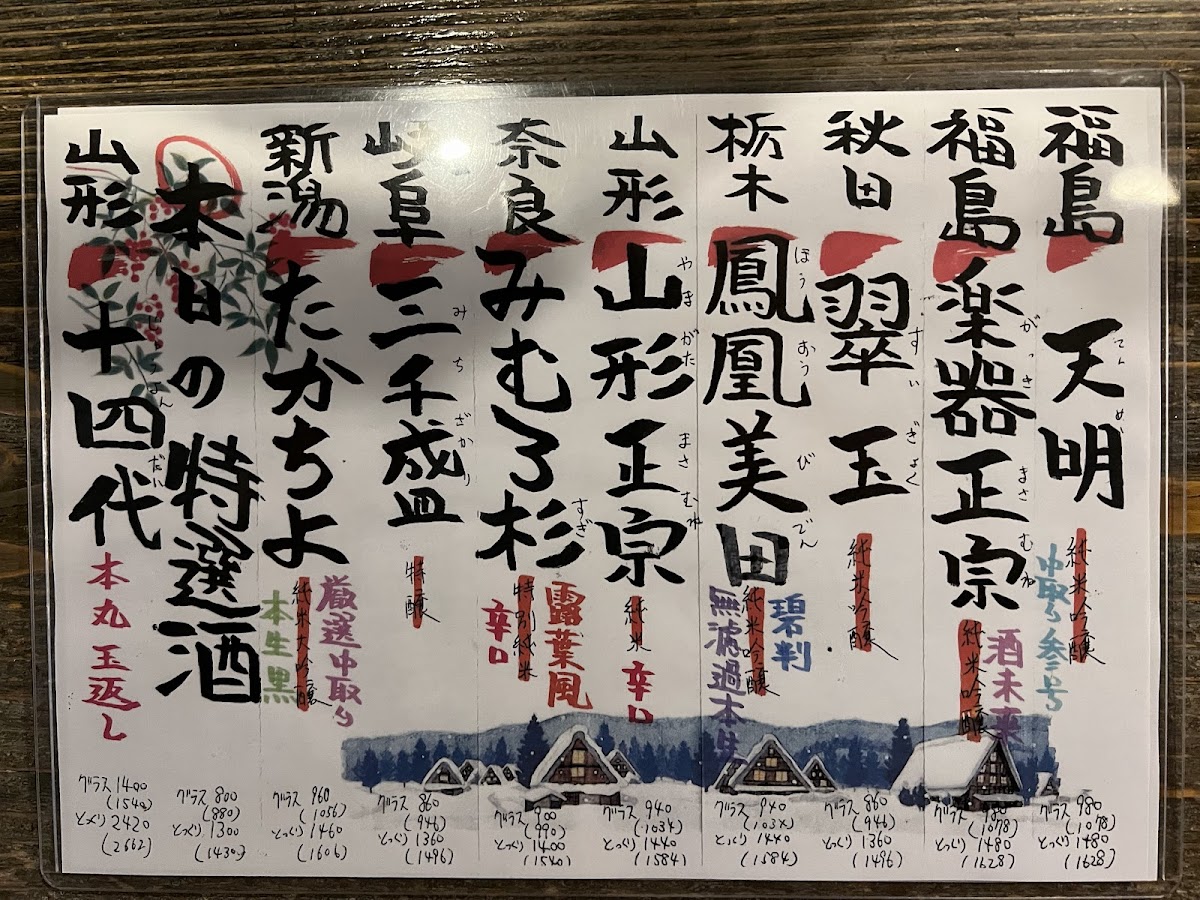 福島
天明
てんめい
純米吟醸
中取り参号
グラス 980
(1078)
とっくり 1480
(1628)
福島
楽器正宗
がっきまさむね
純米吟醸
酒未来
グラス 980
(1078)
とっくり 1480
(1628)
秋田
翠玉
すいぎょく
純米吟醸
グラス 860
(946)
とっくり 1360
(1496)
栃木
鳳凰美田
ほうおうびでん
碧判
純米吟醸
無濾過本生
グラス 940
(1034)
とっくり 1440
(1584)
山形
山形正宗
やまがたまさむね
純米
辛口
グラス 940
(1034)
とっくり 1440
(1584)
奈良
みむろ杉
すぎ
露葉風
特別純米
辛口
グラス 900
(990)
とっくり 1400
(1540)
岐阜
三千盛
みちざかり
特醸
グラス 860
(946)
とっくり 1360
(1496)
新潟
たかちよ
厳選中取り
純米大吟醸
本生黒
グラス 960
(1056)
とっくり 1460
(1606)
本日の特選酒
グラス 800
(880)
とっくり 1300
(1430)
山形
十四代
じゅうよんだい
本丸 玉返し
グラス 1400
(1540)
とっくり 2420
(2662)